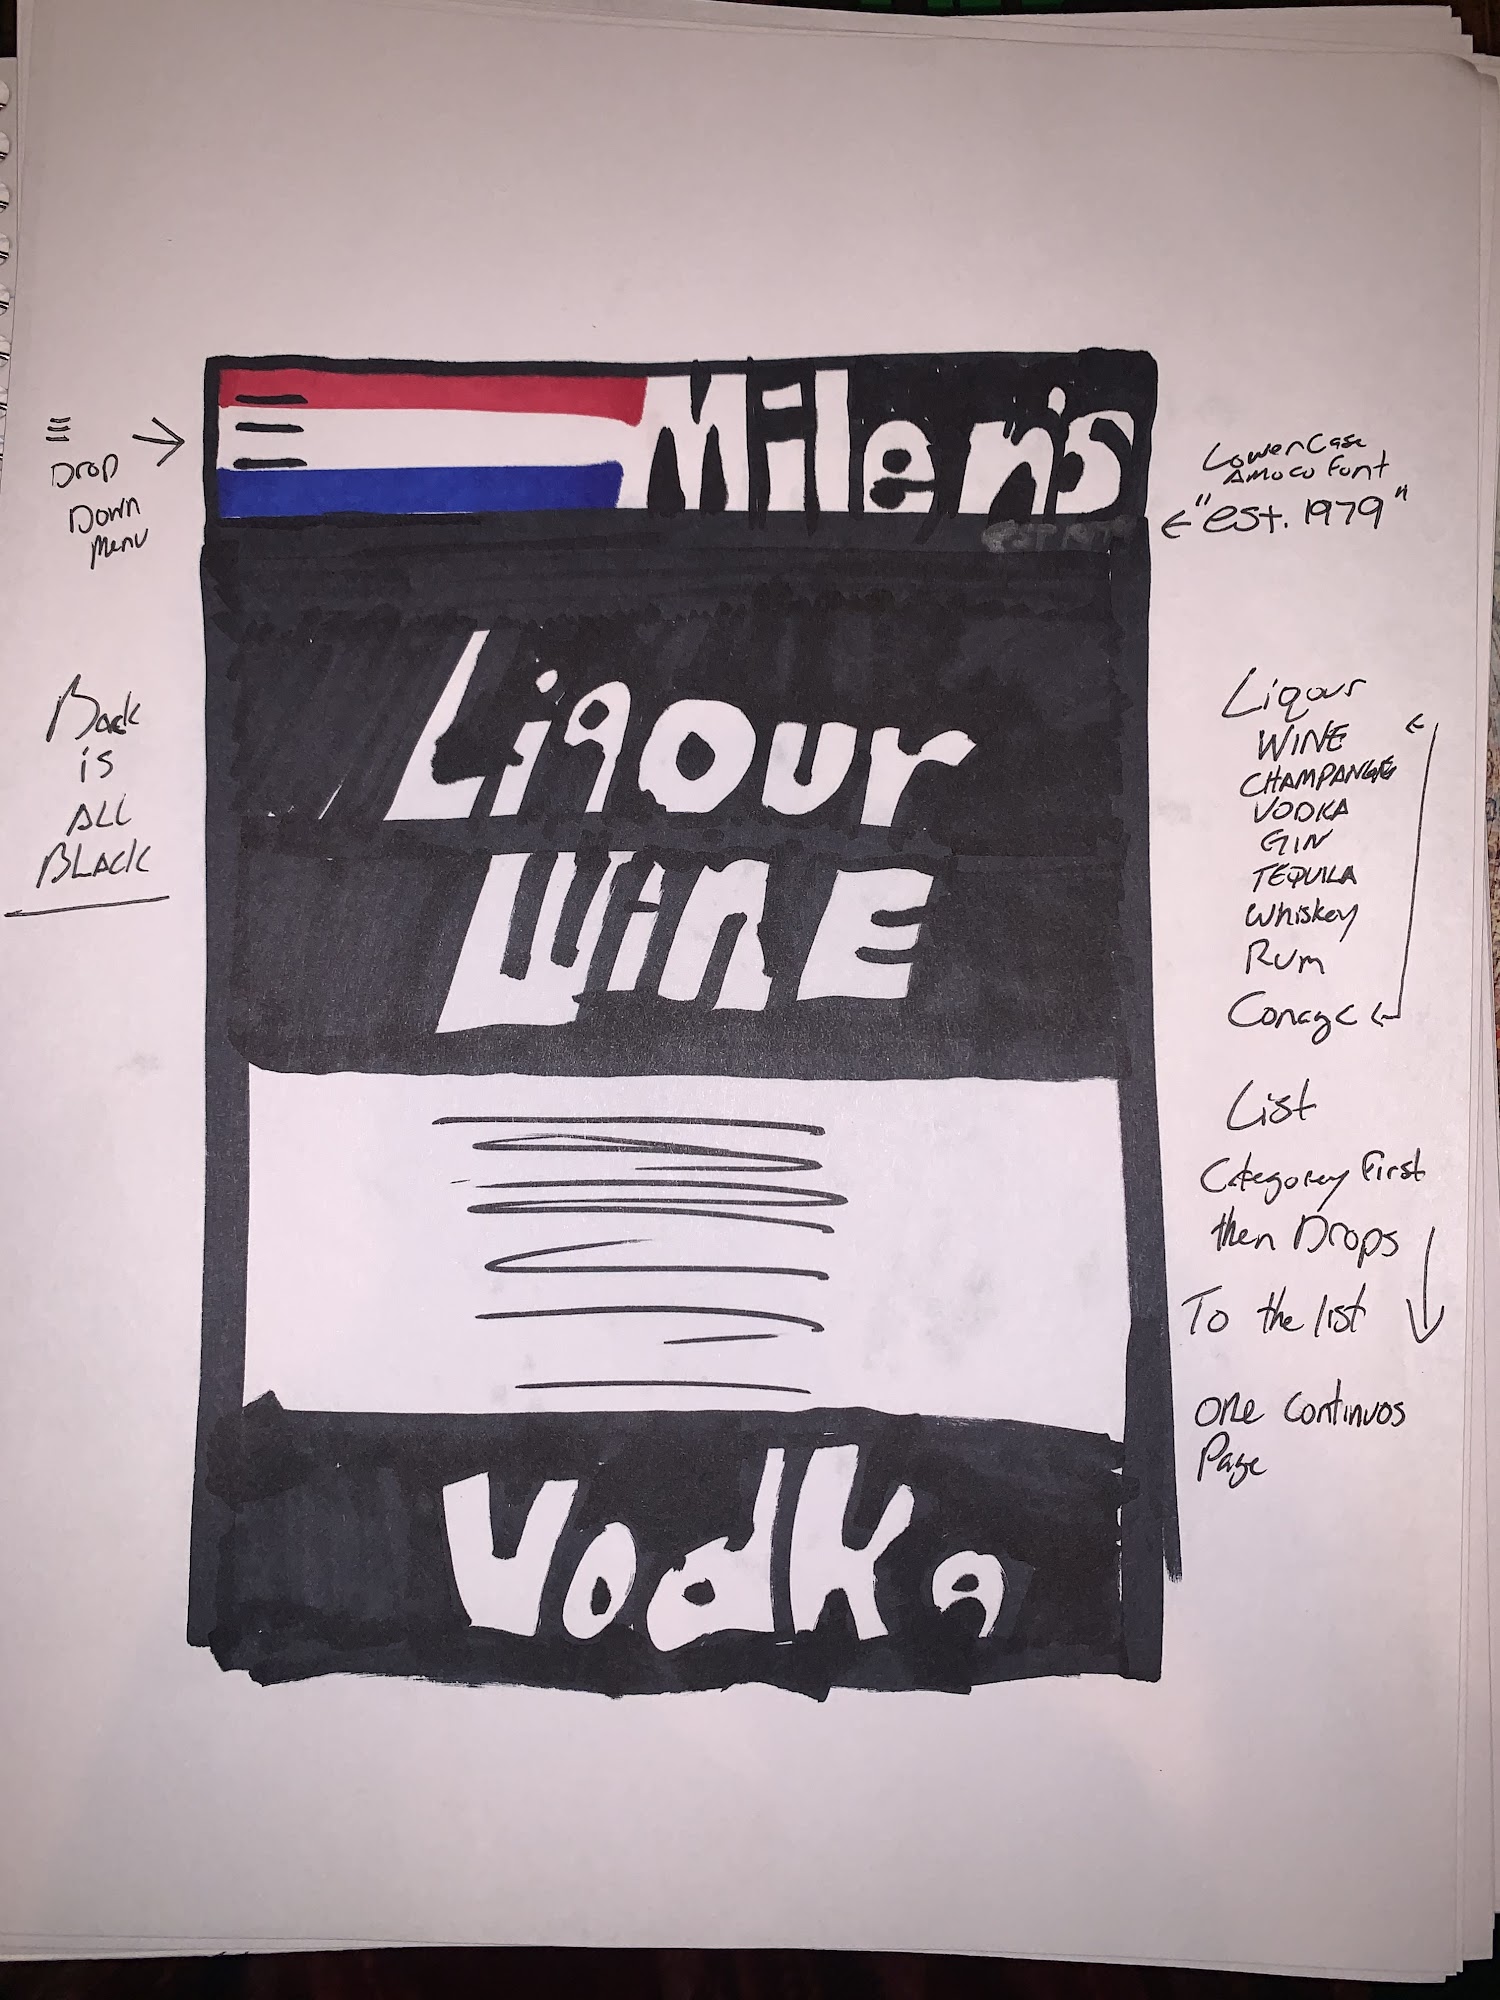 Milen's
est 1979
Liqour
WiNE
Vodka
Drop
Down
Menu
Back
is
ALL
BLACK
LowerCase
Amoco Font
"est. 1979"
Liqour
WINE
CHAMPANGE
VODKA
GIN
TEQUILA
Whiskey
Rum
Conage
List
Category First
then Drops
To the list
one continuos
Page